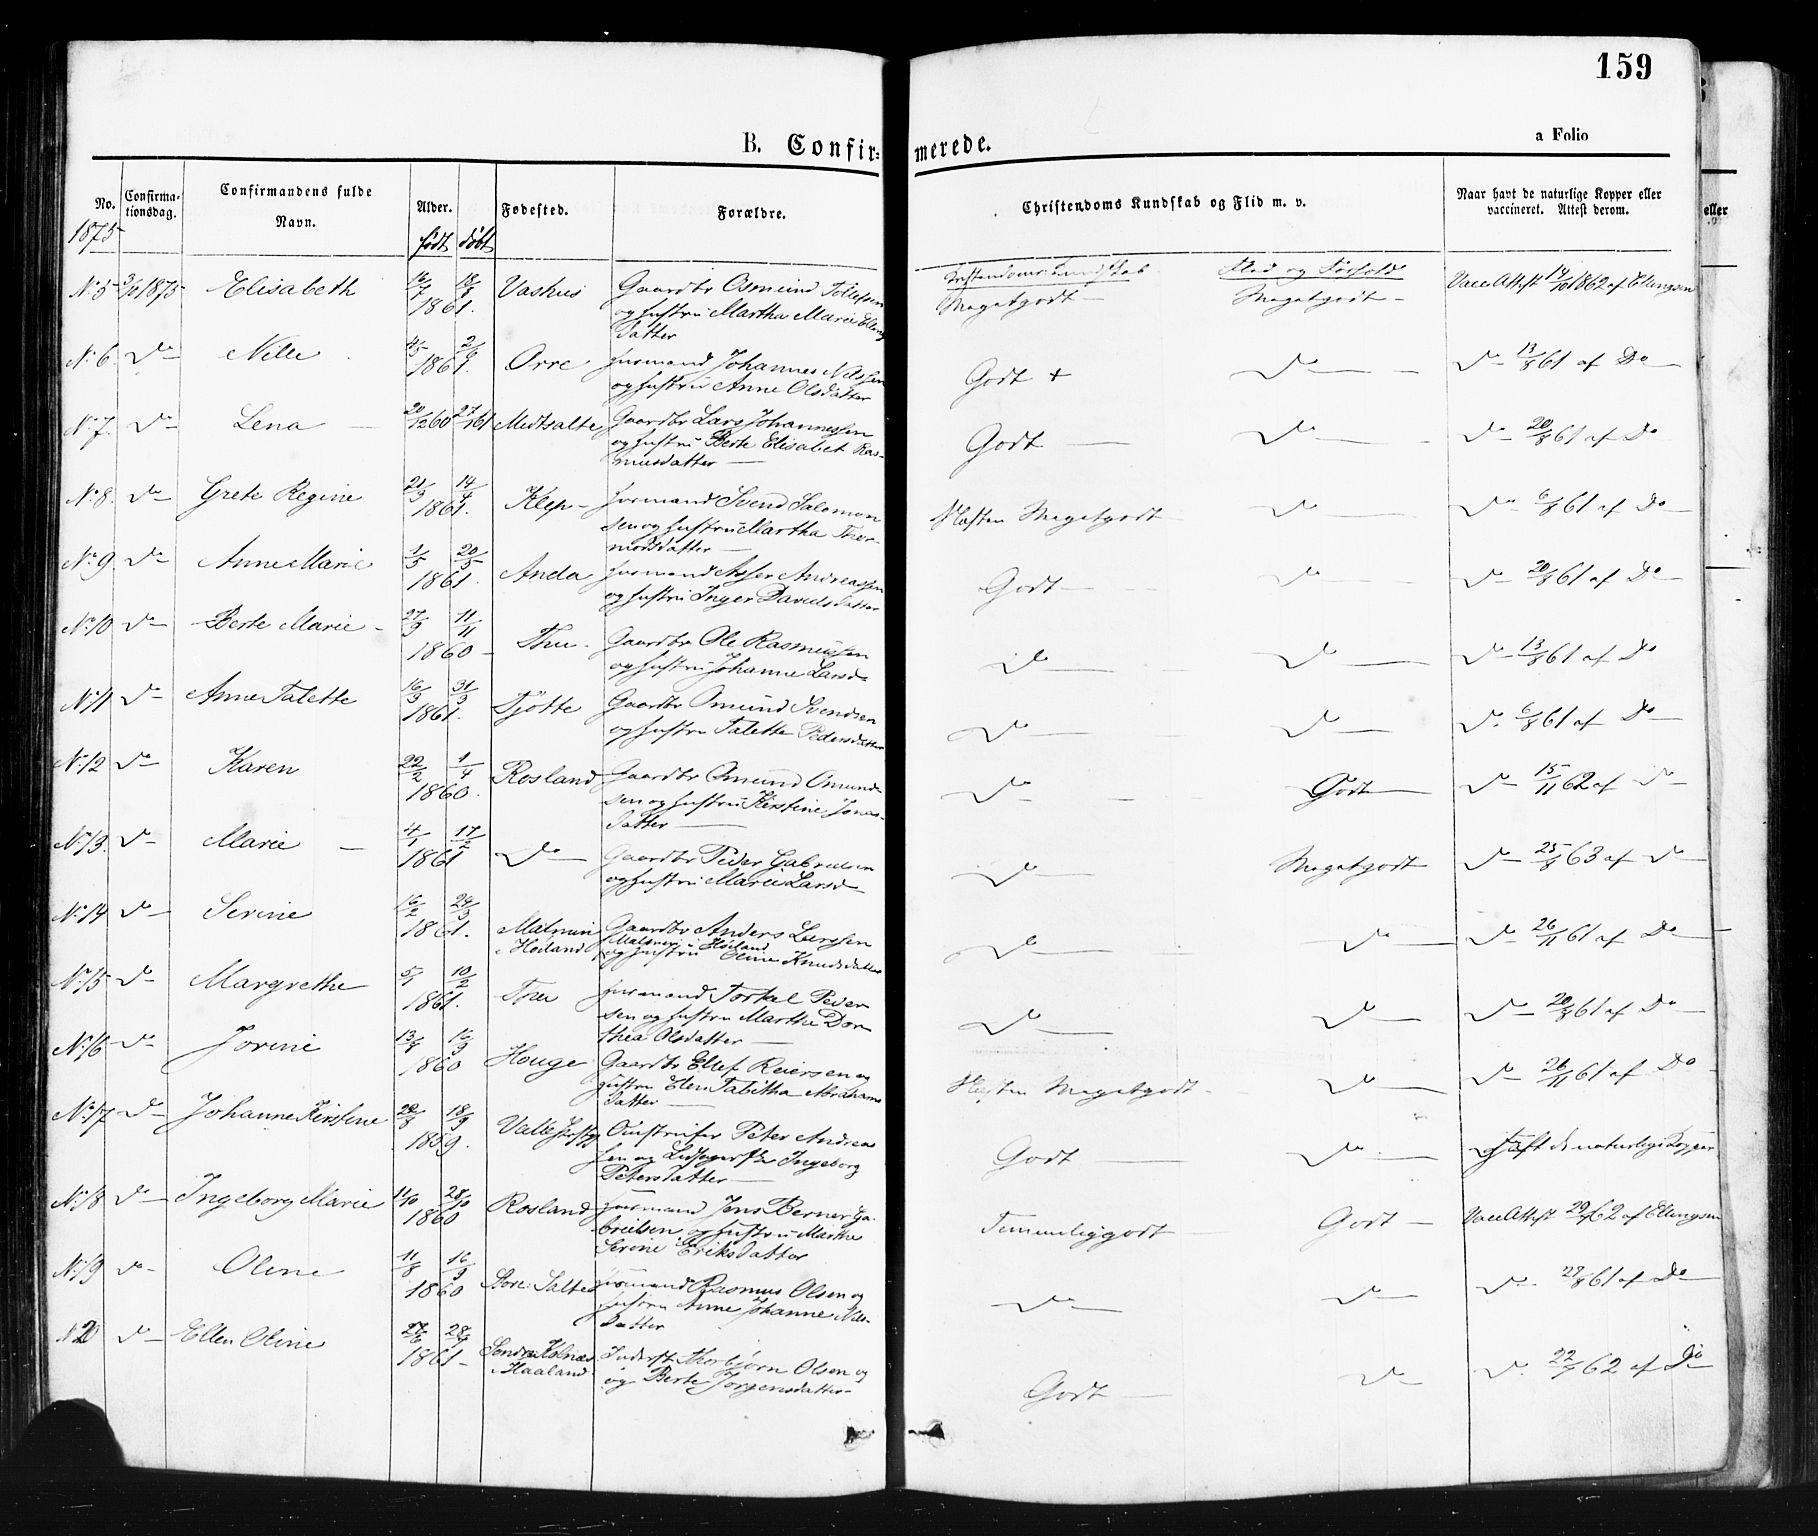 159
B. Confir- merede.
a Folio
No. Confirma-tionsdag. Confirmandens fulde Navn. Alder. Fødested. Forældre. Christendoms Kundskab og Flid m. v. Naar havt de naturlige Kopper eller vaccineret. Attest derom.
1875 født døbt
eller
Christendomskundskab Flid og Forhold
No 5 3/10 1875 Elisabeth 16/7 18/8 1861. Vashus Gaardbr Osmund Tollefsen Megetgodt — Megetgodt — Vacc Attest 14/10 1862 af Ellingsen
og Hustru Martha Marie Elling
datter
No 6. Do Nelle 4/5 2/9 1861. Orre Huusmand Johannes Nilssen Godt + Do — Do 13/8 61 af Do
og Hustru Anne Olsdatter
No 7. Do Lena — 20/12 60 27/1 61 Medtsalte Gaardbr Lars Johannessen Godt — Do — Do 20/8 61 af Do
og Hustru Berte Elisabet Ras-
musdatter —
No 8. Do Grete Regine 21/3 14/4 1861. Klep — Huusmand Svend Salomon Næsten Megetgodt Do — Do 6/8 61 af Do
sen og Hustru Martha Thor-
modsdatter —
No 9 Do Anne Marie 1/5 20/5 1861. Anda Huusmand Asser Andreassen Godt — Do — Do 20/8 61 af Do
og Hustru Inger Davidsdatter
No 10 Do Berte Marie — 27/9 11/11 1860 — Thu — Gaardbr Ole Rasmussen Do — Do — Do 13/8 61 af Do
og Hustru Johanne Larsd—
No 11 Do Anne Talette 16/3 31/3 1861. Tjøtte Gaardbr Omund Svendsen Do — Do — Do 6/8 61 af Do
og Hustru Talette Pedersdatter
No 12 Do Karen 22/2 1/4 1860. Rosland Gaardbr Omund Omund- Do — Godt — Do 15/11 62 af Do
sen og Hustru Kirstine Jonas-
datter —
No 13. Do Marie — 4/1 17/2 1861 Do — Gaardbr Peder Gabrielsen Do — Megetgodt Do 25/8 63 af Do
og Hustru Marie Larsd—
No 14 Do Serine 16/2 24/3 1861. Malmin Gaardbr Anders Larssen Do — Do — Do 26/11 61 af Do
i Høiland Malmin i Høiland
og Hustru Oline Knudsdatter
No 15 Do Margrethe 5/1 10/2 1861. Thu Huusmand Torkel Peder Do — Do — Do 20/8 61 af Do
sen og Hustru Martha Dor
thea Olsdatter —
No 16 Do Jorine 13/8 16/9 1860 Houge Gaardbr Ellef Reiersen og Næsten Megetgodt — Do — Do 26/11 61 af Do
Hustru Elen Tabitha Abrahams
datter —
No 17 Do Johanne Kirstine 18/9 1859. Peter Andreas Godt — Do — Havt de naturlige Kopper
sen og Ingeborg
Petersdatter —
No 18 Do Ingeborg Marie 14/10 28/10 1860 Rosland Huusmand Jens Berner Ga- Temmeliggodt — Godt — Vacc Attest 29/ 62 af Ellingsen
brielsen og Hustru Marthe
Serine Eriksdatter
No 19 Do Oline 11/8 16/9 1860 Store Salte Huusmand Rasmus Olsen og Do — Do — Do 27/8 61 af Do
Hustru Anne Johanne Nils-
datter
No 20 Do Ellen Oline 27/6 28/7 1861 — Søndre Kolnæs Inderst Thorbjørn Olsen og Godt — Do Do. 22/ 62 af Do
i Haaland og Berte Jørgensdatter —